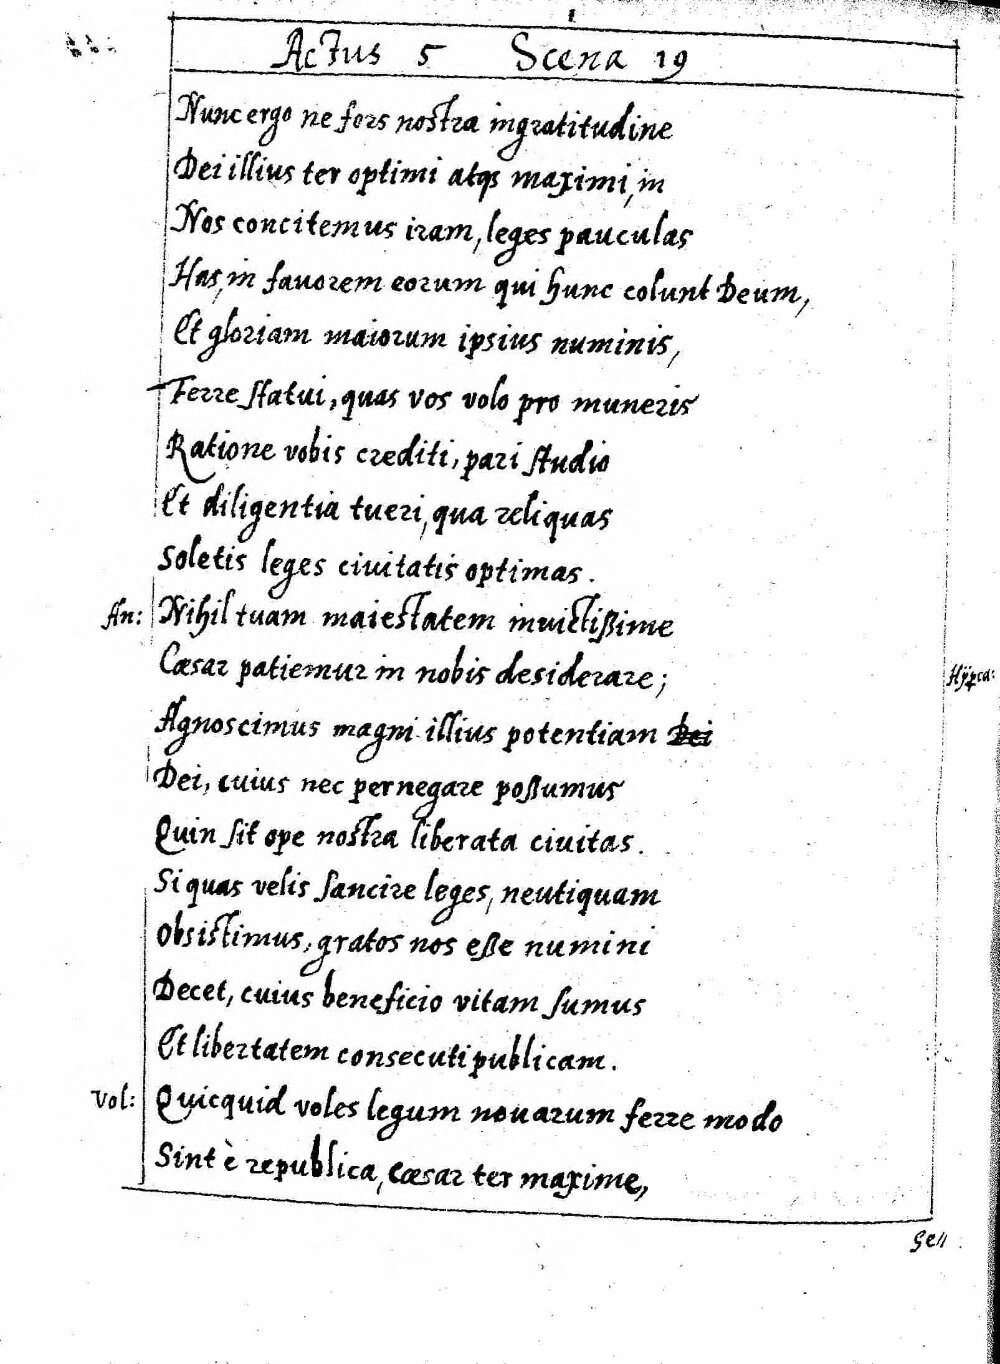 Actus 5 Scena 19
Nunc ergo ne fors nostra ingratitudine
Dei illius ter optimi atqꝫ maximi, in
Nos concitemus iram, leges pauculas
Has, in favorem eorum qui hunc colunt Deum,
Et gloriam maiorum ipsius numinis,
Ferre statui, quas vos volo pro muneris
Ratione vobis crediti, pari studio
Et diligentia tueri, qua reliquas
Soletis leges ciuitatis optimas.
An: Nihil tuam maiestatem inuictißime
Cæsar patiemur in nobis desiderare;
Agnoscimus magni illius potentiam Dei
Dei, cuius nec pernegare poßumus
Quin sit ope nostra liberata ciuitas.
Si quas velis sancire leges, neutiquam
Obsistimus, gratos nos eße numini
Decet, cuius beneficio vitam sumus
Et libertatem consecuti publicam.
Vol: Quicquid voles legum nouarum ferre modo
Sint è republica, Cæsar ter maxime,